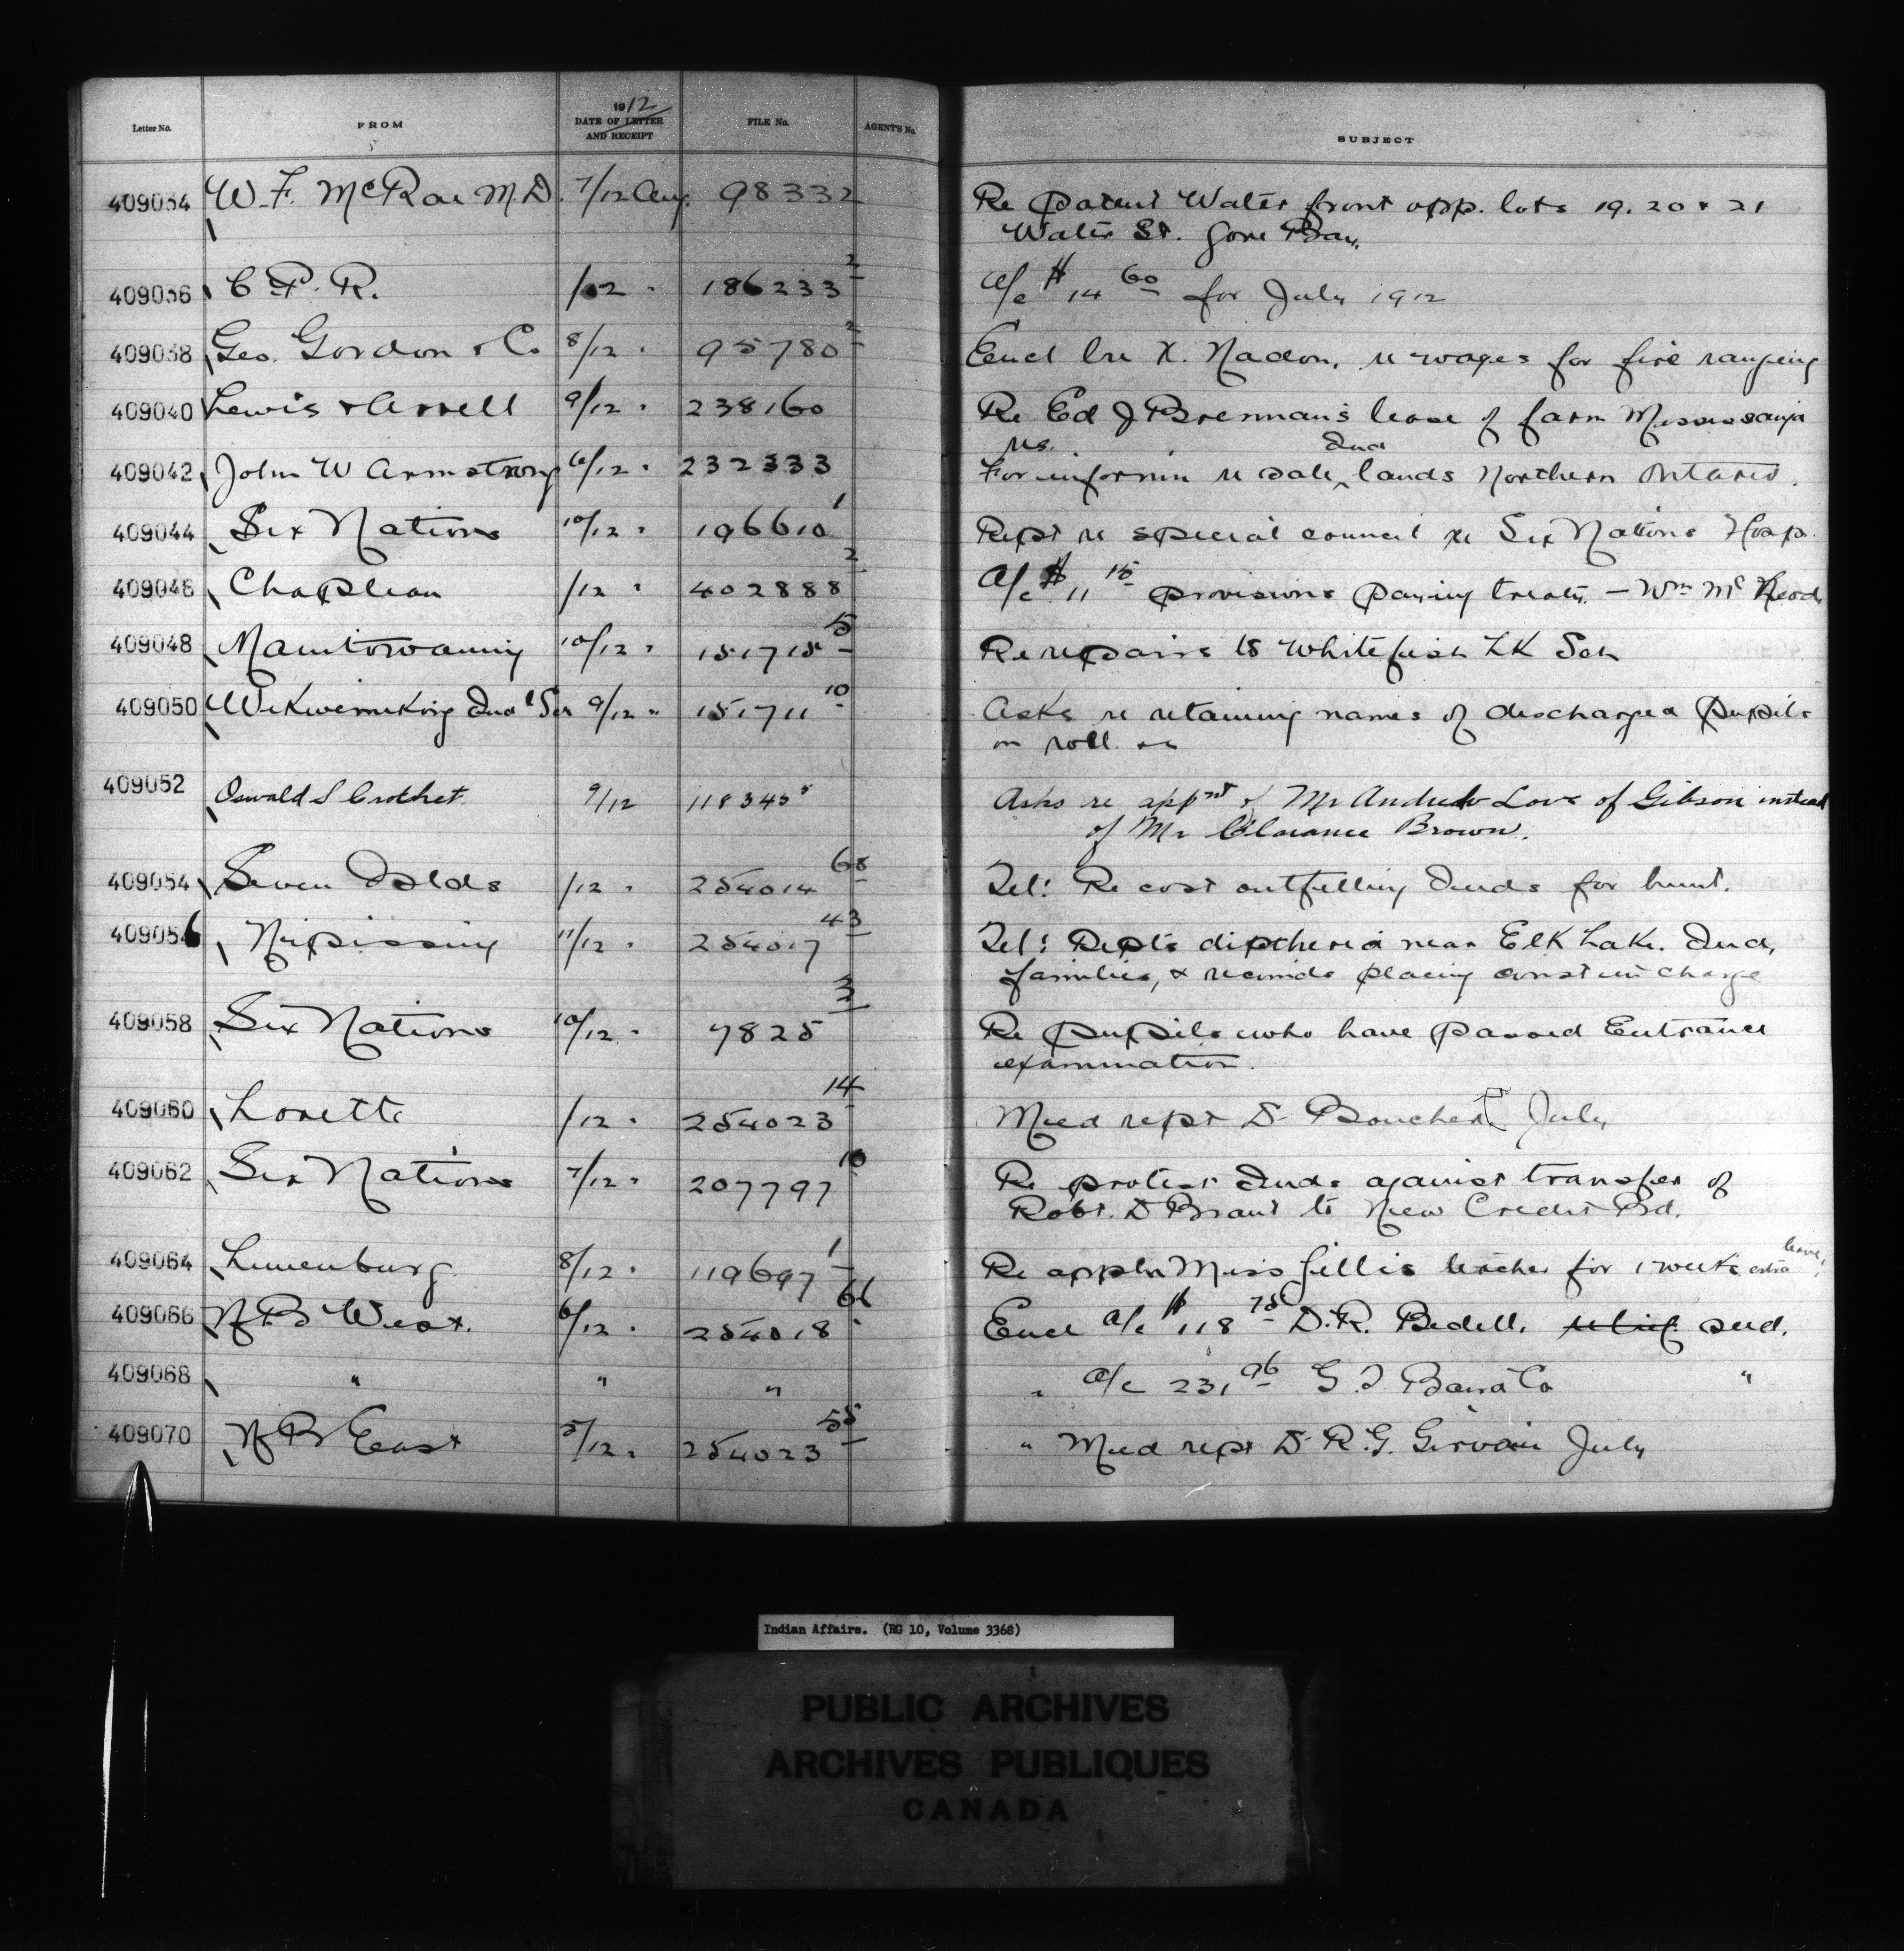 Letter No. FROM 1912 DATE OF LETTER AND RECEIPT FILE No. AGENT'S No. SUBJECT
409034 W. F. McRae M.D. 7/12 Aug. 98332 Re patent Water front opp. lots 19. 20 & 21
Water St. Gore Bay.
409036 C. P. R. /12 " 186233 2 a/c $14 60 for July 1912
409038 Geo. Gordon & Co 8/12 " 95780 2 Encl lre X. Nadon, re wages for fire ranging
409040 Lewis & Arrell 9/12 " 238160 Re Ed J Brennan's lease of farm Mississauga
res.
409042 John W Armstrong 6/12 " 232333 For informn re sale Ind lands Northern Ontario.
409044 Six Nations 10/12 " 196610 1 Rept re special council re Six Nations Hosp.
409046 Chapleau /12 " 402888 2 A/c $11 15 provisions paying treaty. — Wm Mc
409048 Manitowaning 10/12 " 151715 5 Re repairs to Whitefish Lk Sch
409050 Wikwemikong Ind l Sch 9/12 " 151711 10 Asks re retaining names of discharged pupils
on roll. &c
409052 Oswald S Crothet. 9/12 118345 Asks re appnt of Mr Andrew Love of Gibson instead
of Mr Clarance Brown.
409054 Seven Islds /12 " 254014 68 Tel: Re cost outfitting Inds for hunt.
409056 Nipissing 11/12 " 254017 43 Tel: Repts diptheria near Elk Lake. Ind.
families, & recomds placing const in charge
409058 Six Nations 10/12 " 7825 3 Re pupils who have passed Entrance
examination.
409060 Lorette /12 " 254023 14 Med rept Dr Boucher July
409062 Six Nations 7/12 " 207797 10 Re protest Inds against transfer of
Robt. D Brant to New Credit Bd.
409064 Lunenburg 8/12 " 119697 1 Re appln Miss Gillis teacher for 1 weeks extra leave
409066 N B West. 6/12 " 254018 66 Encl a/c $118 75 D.R. Bedell. relief. seed.
409068 " " " " a/c 231 96 G. T Baird Co "
409070 N B East 5/12 " 254023 55 " Med rept Dr R. G. Girvan July
Indian Affairs. (RG 10, Volume 3368)
PUBLIC ARCHIVES
ARCHIVES PUBLIQUES
CANADA